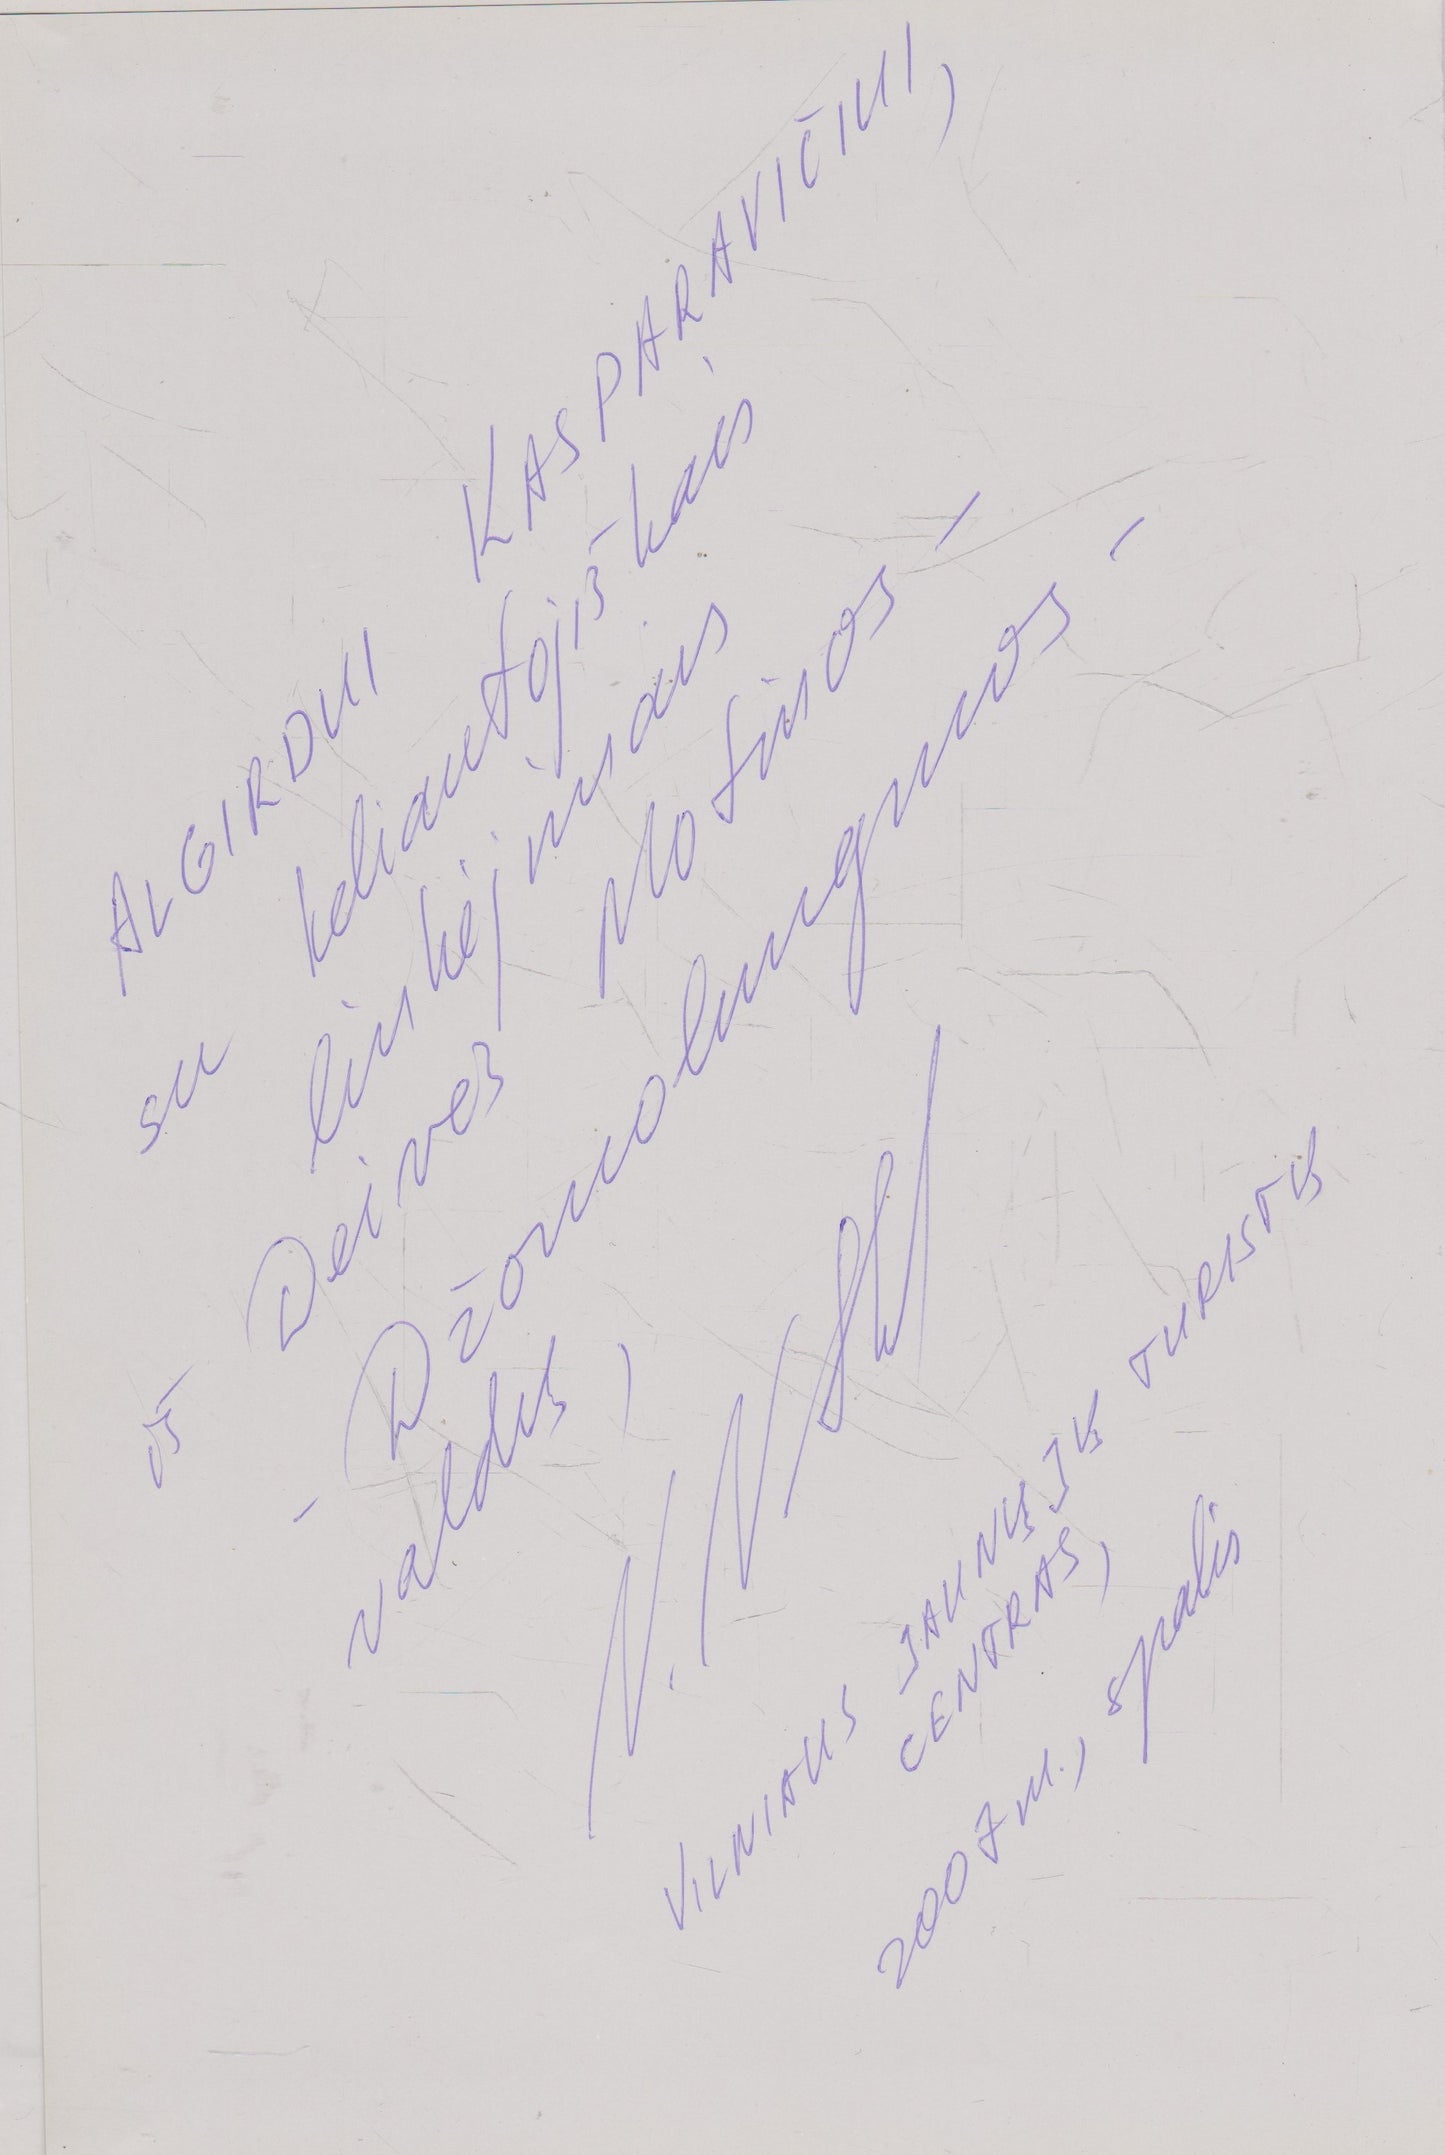 ALGIRDUI KASPARAVIČIUI,
su keliautojiškais
linkėjimais
iš Deivės Motinos –
– Džomolungmos –
valdų,
VILNIAUS JAUNŲJŲ TURISTŲ
CENTRAS,
2007 m., spalis